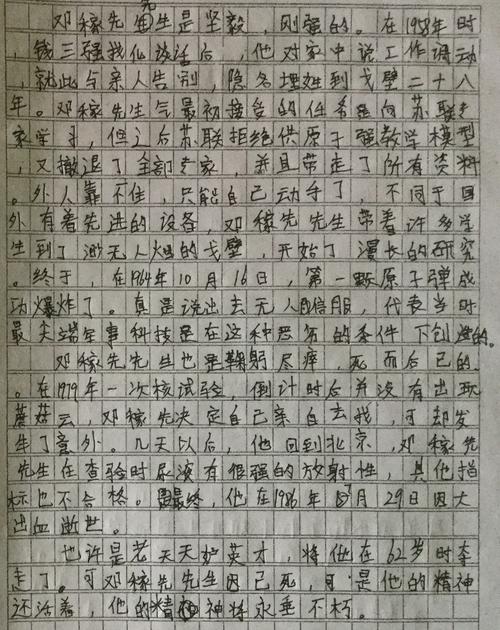 邓稼先先生是坚毅，刚强的。在1958年时
，钱三强找他谈话后，他对家中说工作调动
，就此与亲人告别，隐名埋姓到戈壁二十八
年。邓稼先生气最初接受的任务是向苏联专
家学习，但之后苏联拒绝供原子弹教学模型
，又撤退了全部专家，并且带走了所有资料
。外人靠不住，只能自己动手了，不同于国
外有着先进的设备，邓稼先先生带着许多学
生到了渺无人烟的戈壁，开始了漫长的研究
。终于，在1964年10月16日，第一颗原子弹成
功爆炸了。真是说出去无人取信服，代表当时
最尖端军事科技是在这种恶劣的条件下创造的。
邓稼先先生也是鞠躬尽瘁，死而后已的
。在1979年一次核试验，倒计时后并没有出现
蘑菇云，邓稼先决定自己亲自去找，可却发
生了意外。几天以后，他回到北京，邓稼先
先生在查验时尿液有很强的放射性，其他指
标也不合格。最终，他在1986年7月29日因大
出血逝世。
也许是老天天妒英才，将他在62岁时牵
走了。可邓稼先先生因已死，可是他的精神
还活着，他的精神将永垂不朽。